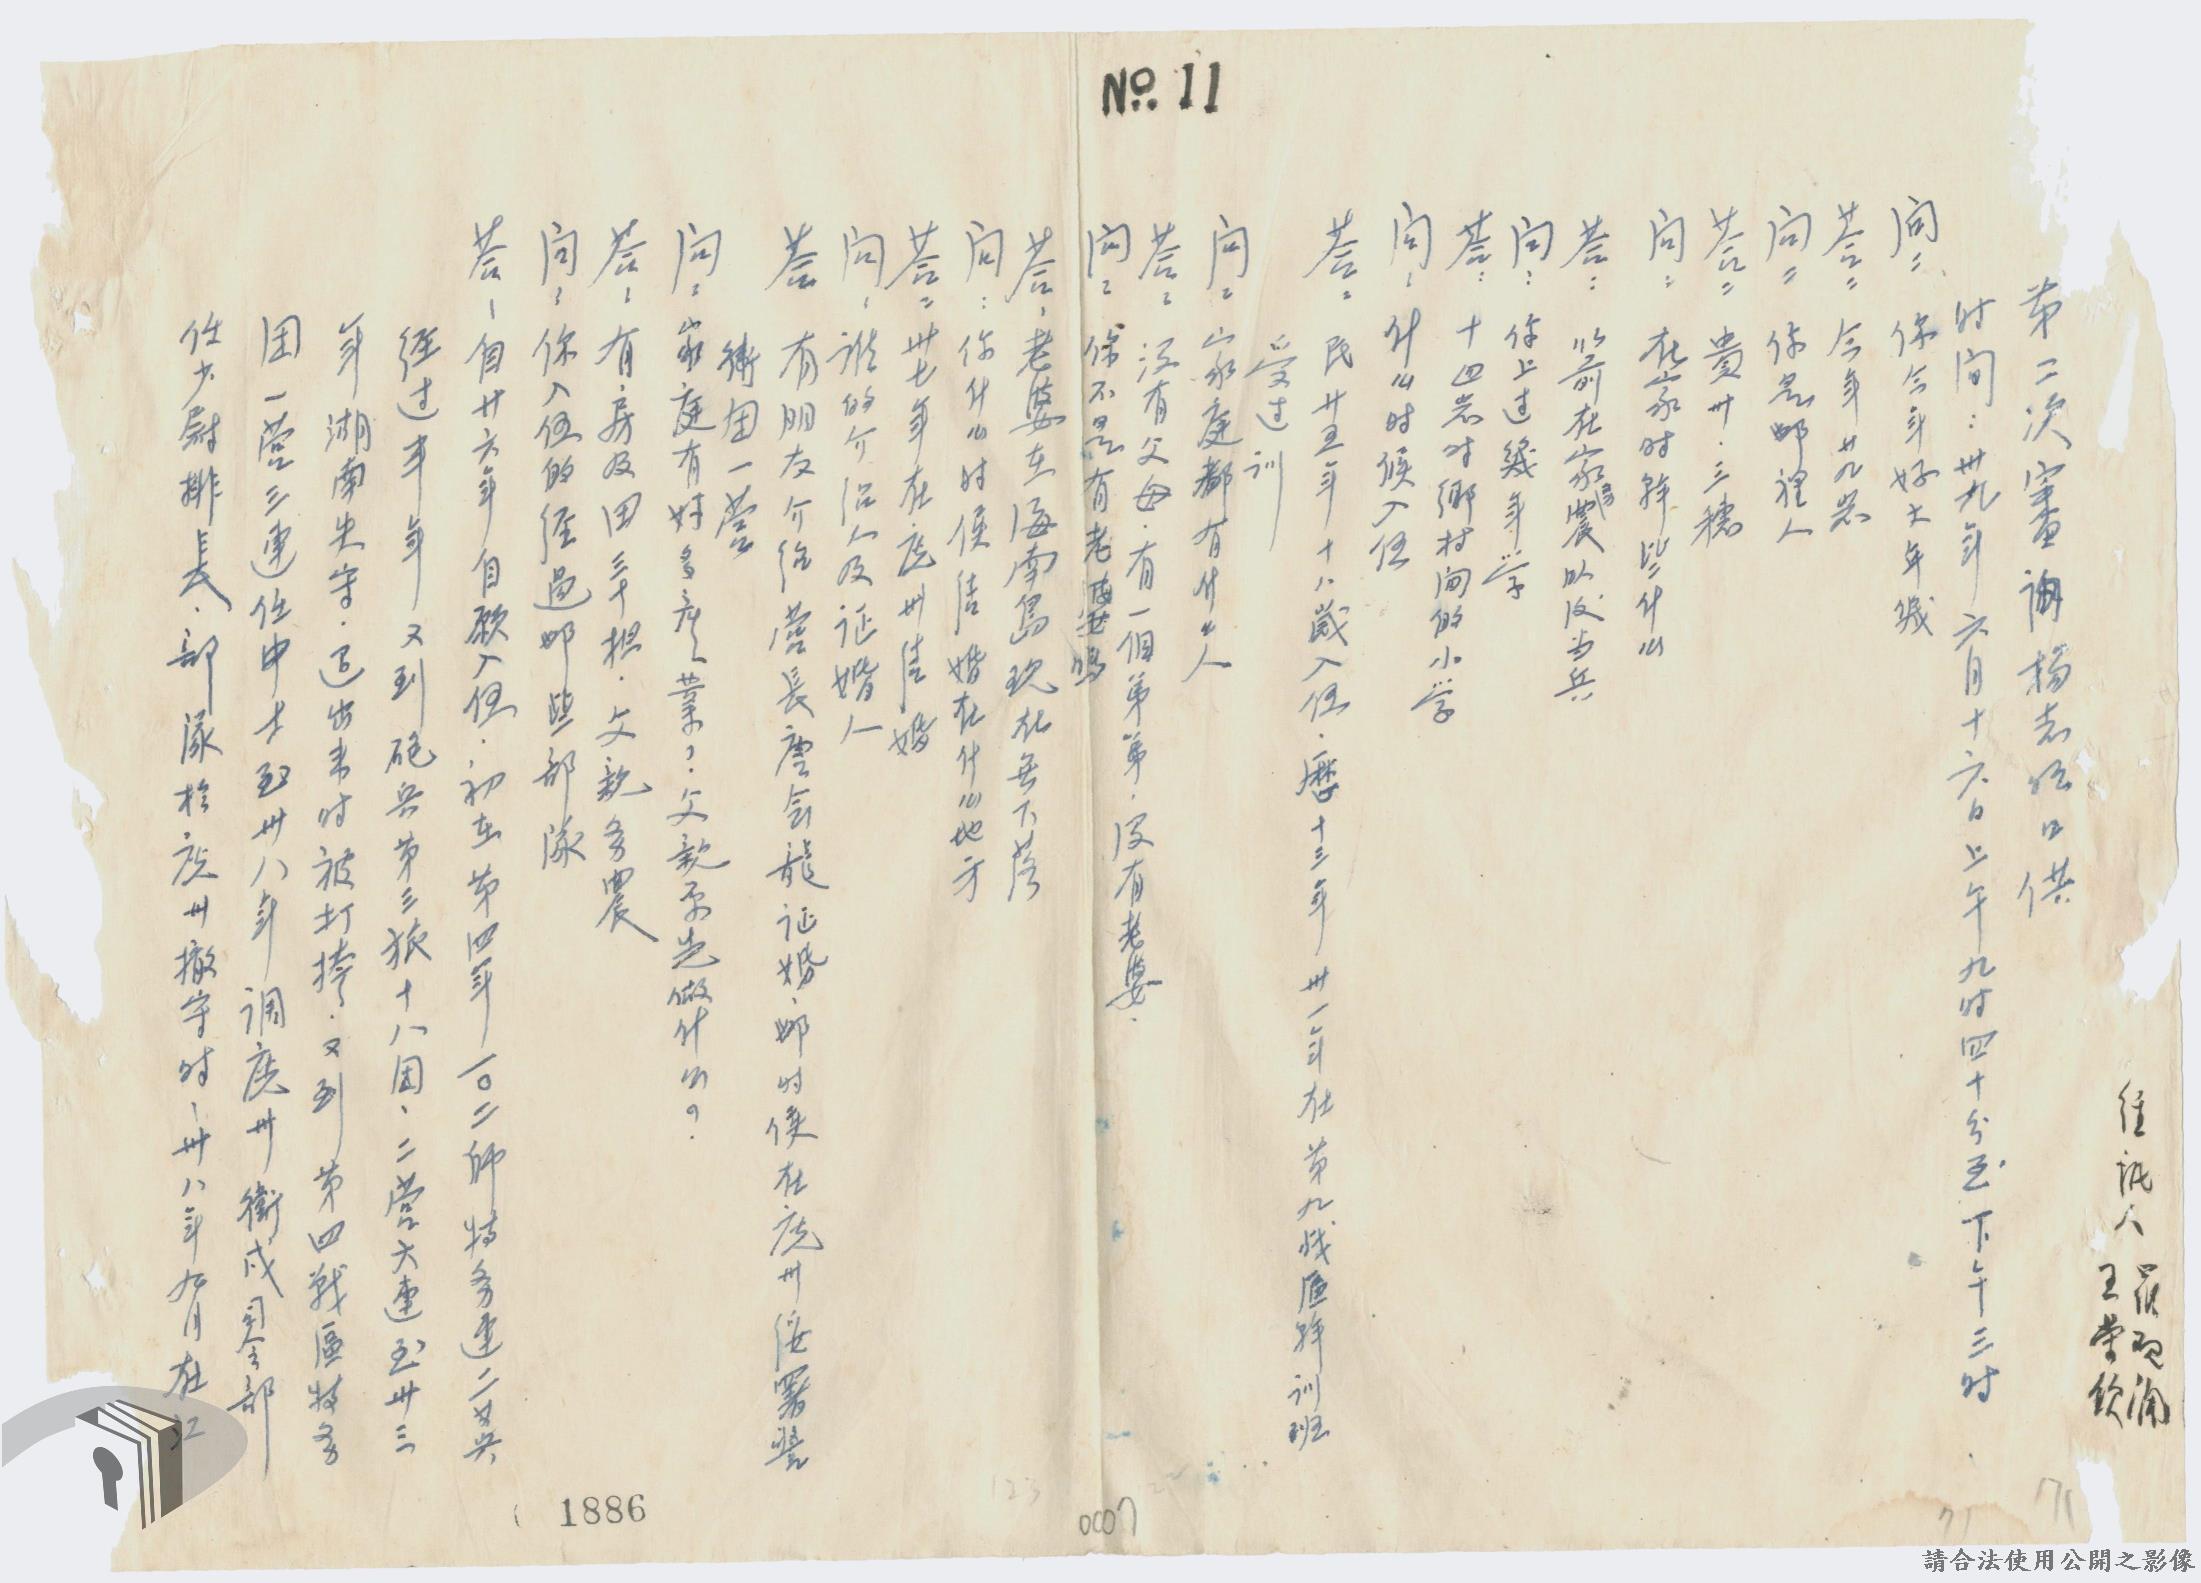 No. 11
第二次審查詢楊志
口供
時间：卅九年六月十六日上午九时四十分至下午三时
經訊人
王荣欽
问：你今年好大年纪
荅：今年廿九岁
问：你是那裡人
荅：貴州·三穗
问：在家时幹些什么
荅：以前在家務農以后当兵
问：你上过幾年学
荅：十四岁时鄉村间的小学
问：什么时候入伍
荅：民廿五年十八歲入伍·歷十三年卅一年在第九战區幹训班
受过训
问：家庭都有什么人
荅：没有父母·有一個弟弟·没有老婆·
问：你不是有老婆嗎
荅：老婆在海南島现在无下落
问：你什么时侯结婚在什么地方
荅：卅七年在広州结婚
问：谁的介绍人及证婚人
荅 有朋友介绍營長唐会龍证婚·那时侯在広州绥署警
衛团一營
问：家庭有好多產業？父親原先做什么？
荅：有房及田三十担·父親务農
问：你入伍的經過那些部隊
荅：自廿六年自願入伍·初在第四军一〇二師特务連二等兵
经过半年又到砲兵第三旅十八团、二营六連至卅三
年湖南失守·退出来时被打挎·又到第四戰區特务
团一營三連任中士至卅八年调広州衛戍司令部
任少尉排長·部隊於広州撤守时、卅八年九月在江
1886
0007
123
71
171
請合法使用公開之影像